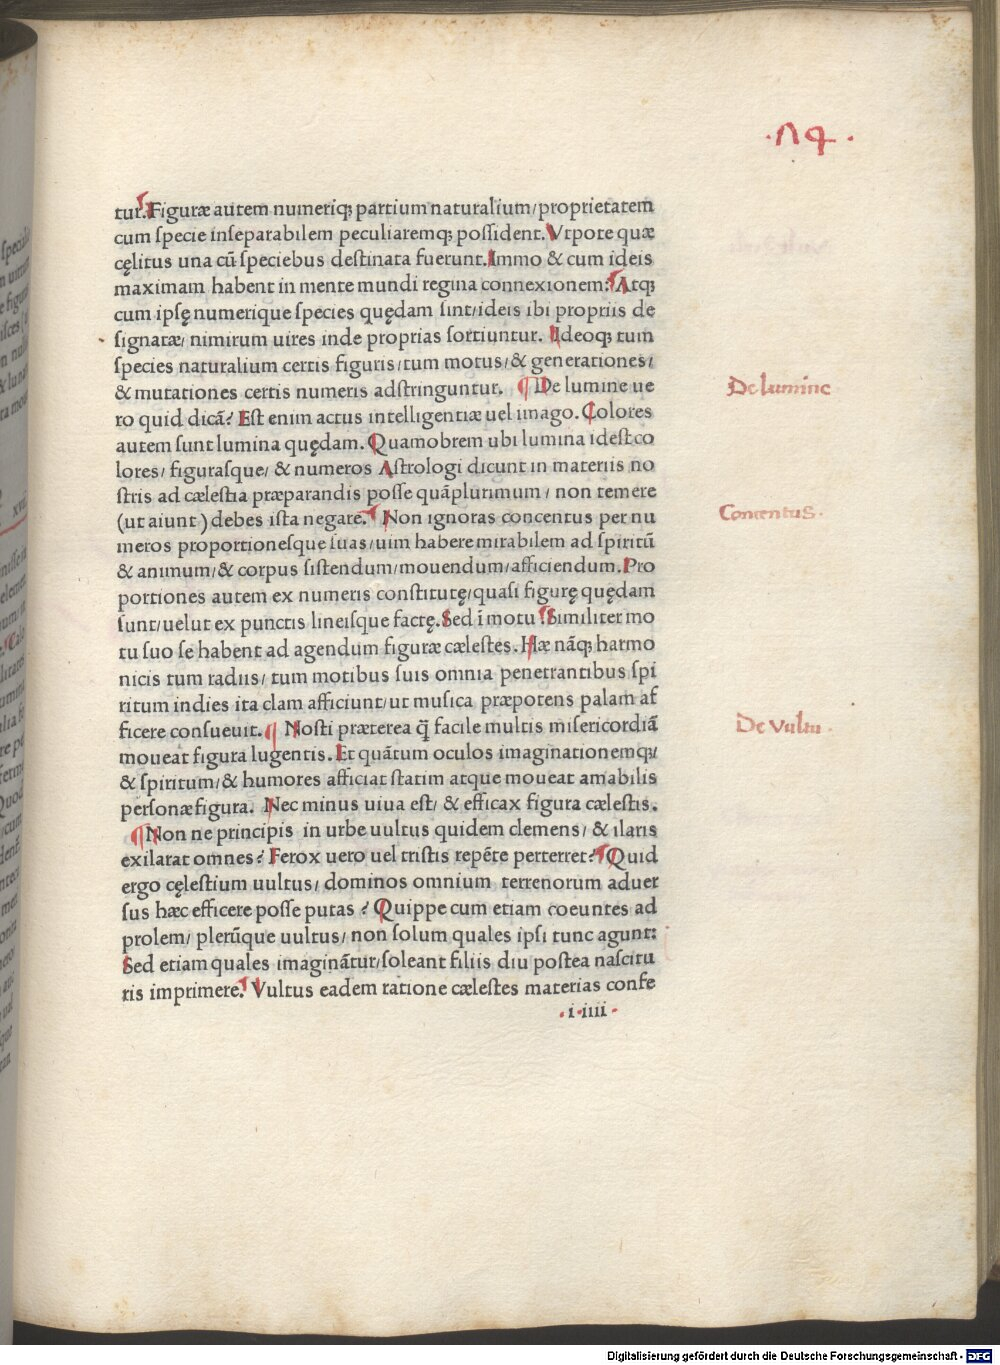 tur. Figuræ autem numeriq; partium naturalium/ proprietatem
cum specie inseparabilem peculiaremq; possident. Vtpote quæ
cęlitus una cū speciebus destinata fuerunt. Immo & cum ideis
maximam habent in mente mundi regina connexionem: Atq;
cum ipsę numerique species quędam sint/ ideis ibi propriis de
signatæ/ nimirum uires inde proprias sortiuntur. Ideoq; tum
species naturalium certis figuris/ tum motus/ & generationes/
& mutationes certis numeris adstringuntur. ¶ De lumine ue
ro quid dicā? Est enim actus intelligentiæ uel imago. Colores
autem sunt lumina quędam. Quamobrem ubi lumina idest co
lores/ figurasque/ & numeros Astrologi dicunt in materiis no
stris ad cælestia præparandis posse quāplurimum/ non temere
(ut aiunt) debes ista negare. Non ignoras concentus per nu
meros proportionesque suas/ uim habere mirabilem ad spiritū
& animum/ & corpus sistendum/ mouendum/ afficiendum. Pro
portiones autem ex numeris constitutę/ quasi figurę quędam
sunt/ uelut ex punctis lineisque factę. Sed ī motu. Similiter mo
tu suo se habent ad agendum figuræ cælestes. Hæ nāq; harmo
nicis tum radiis/ tum motibus suis omnia penetrantibus spi
ritum indies ita clam afficiunt/ ut musica præpotens palam af
ficere consueuit. ¶ Nosti præterea q̄ facile multis misericordiā
moueat figura lugentis. Et quātum oculos imaginationemq;/
& spiritum/ & humores afficiat statim atque moueat amabilis
personæ figura. Nec minus uiua est/ & efficax figura cælestis.
¶ Non ne principis in urbe uultus quidem clemens/ & ilaris
exilarat omnes? Ferox uero uel tristis repēte perterret? Quid
ergo cęlestium uultus/ dominos omnium terrenorum aduer
sus hæc efficere posse putas? Quippe cum etiam coeuntes ad
prolem/ plerūque uultus/ non solum quales ipsi tunc agunt:
Sed etiam quales imaginātur/ soleant filiis diu postea nascitu
ris imprimere. Vultus eadem ratione cælestes materias confe
.i.iiii.
De lumine
Concentus.
De Vultu.
Digitalisierung gefördert durch die Deutsche Forschungsgemeinschaft - DFG